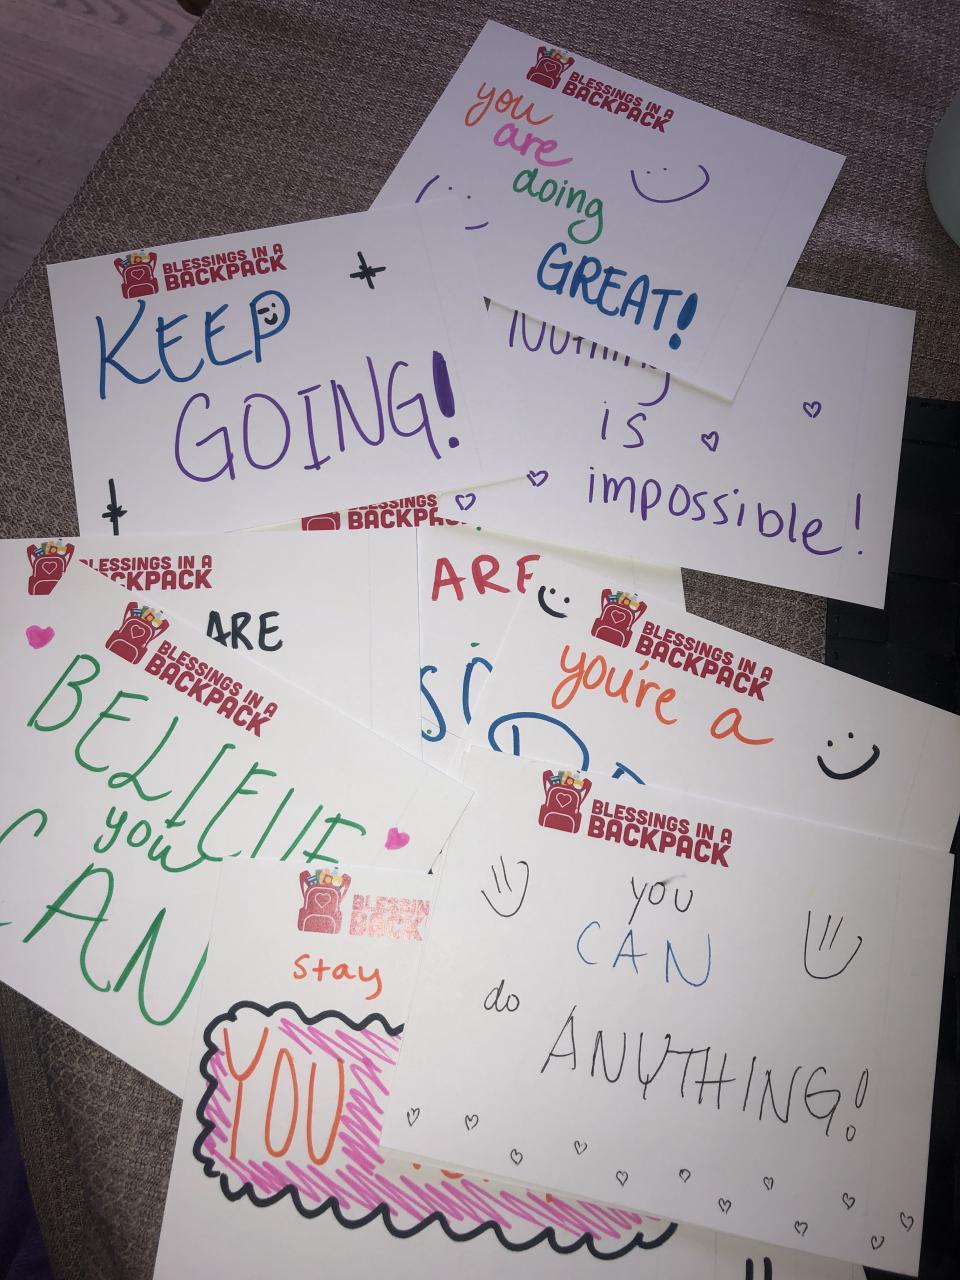 BLESSINGS IN A
BACKPACK
you
are
doing
GREAT!
BLESSINGS IN A
BACKPACK
KEEP
GOING!
Nothing
is
impossible!
BLESSINGS IN A
BACKPACK
ARE
BLESSINGS IN A
BACKPACK
ARE
BLESSINGS IN A
BACKPACK
you're a
BLESSINGS IN A
BACKPACK
BELIEVE
you
CAN
BLESSINGS IN A
BACKPACK
you
CAN
do
ANYTHING!
BLESSIN
BACK
stay
YOU